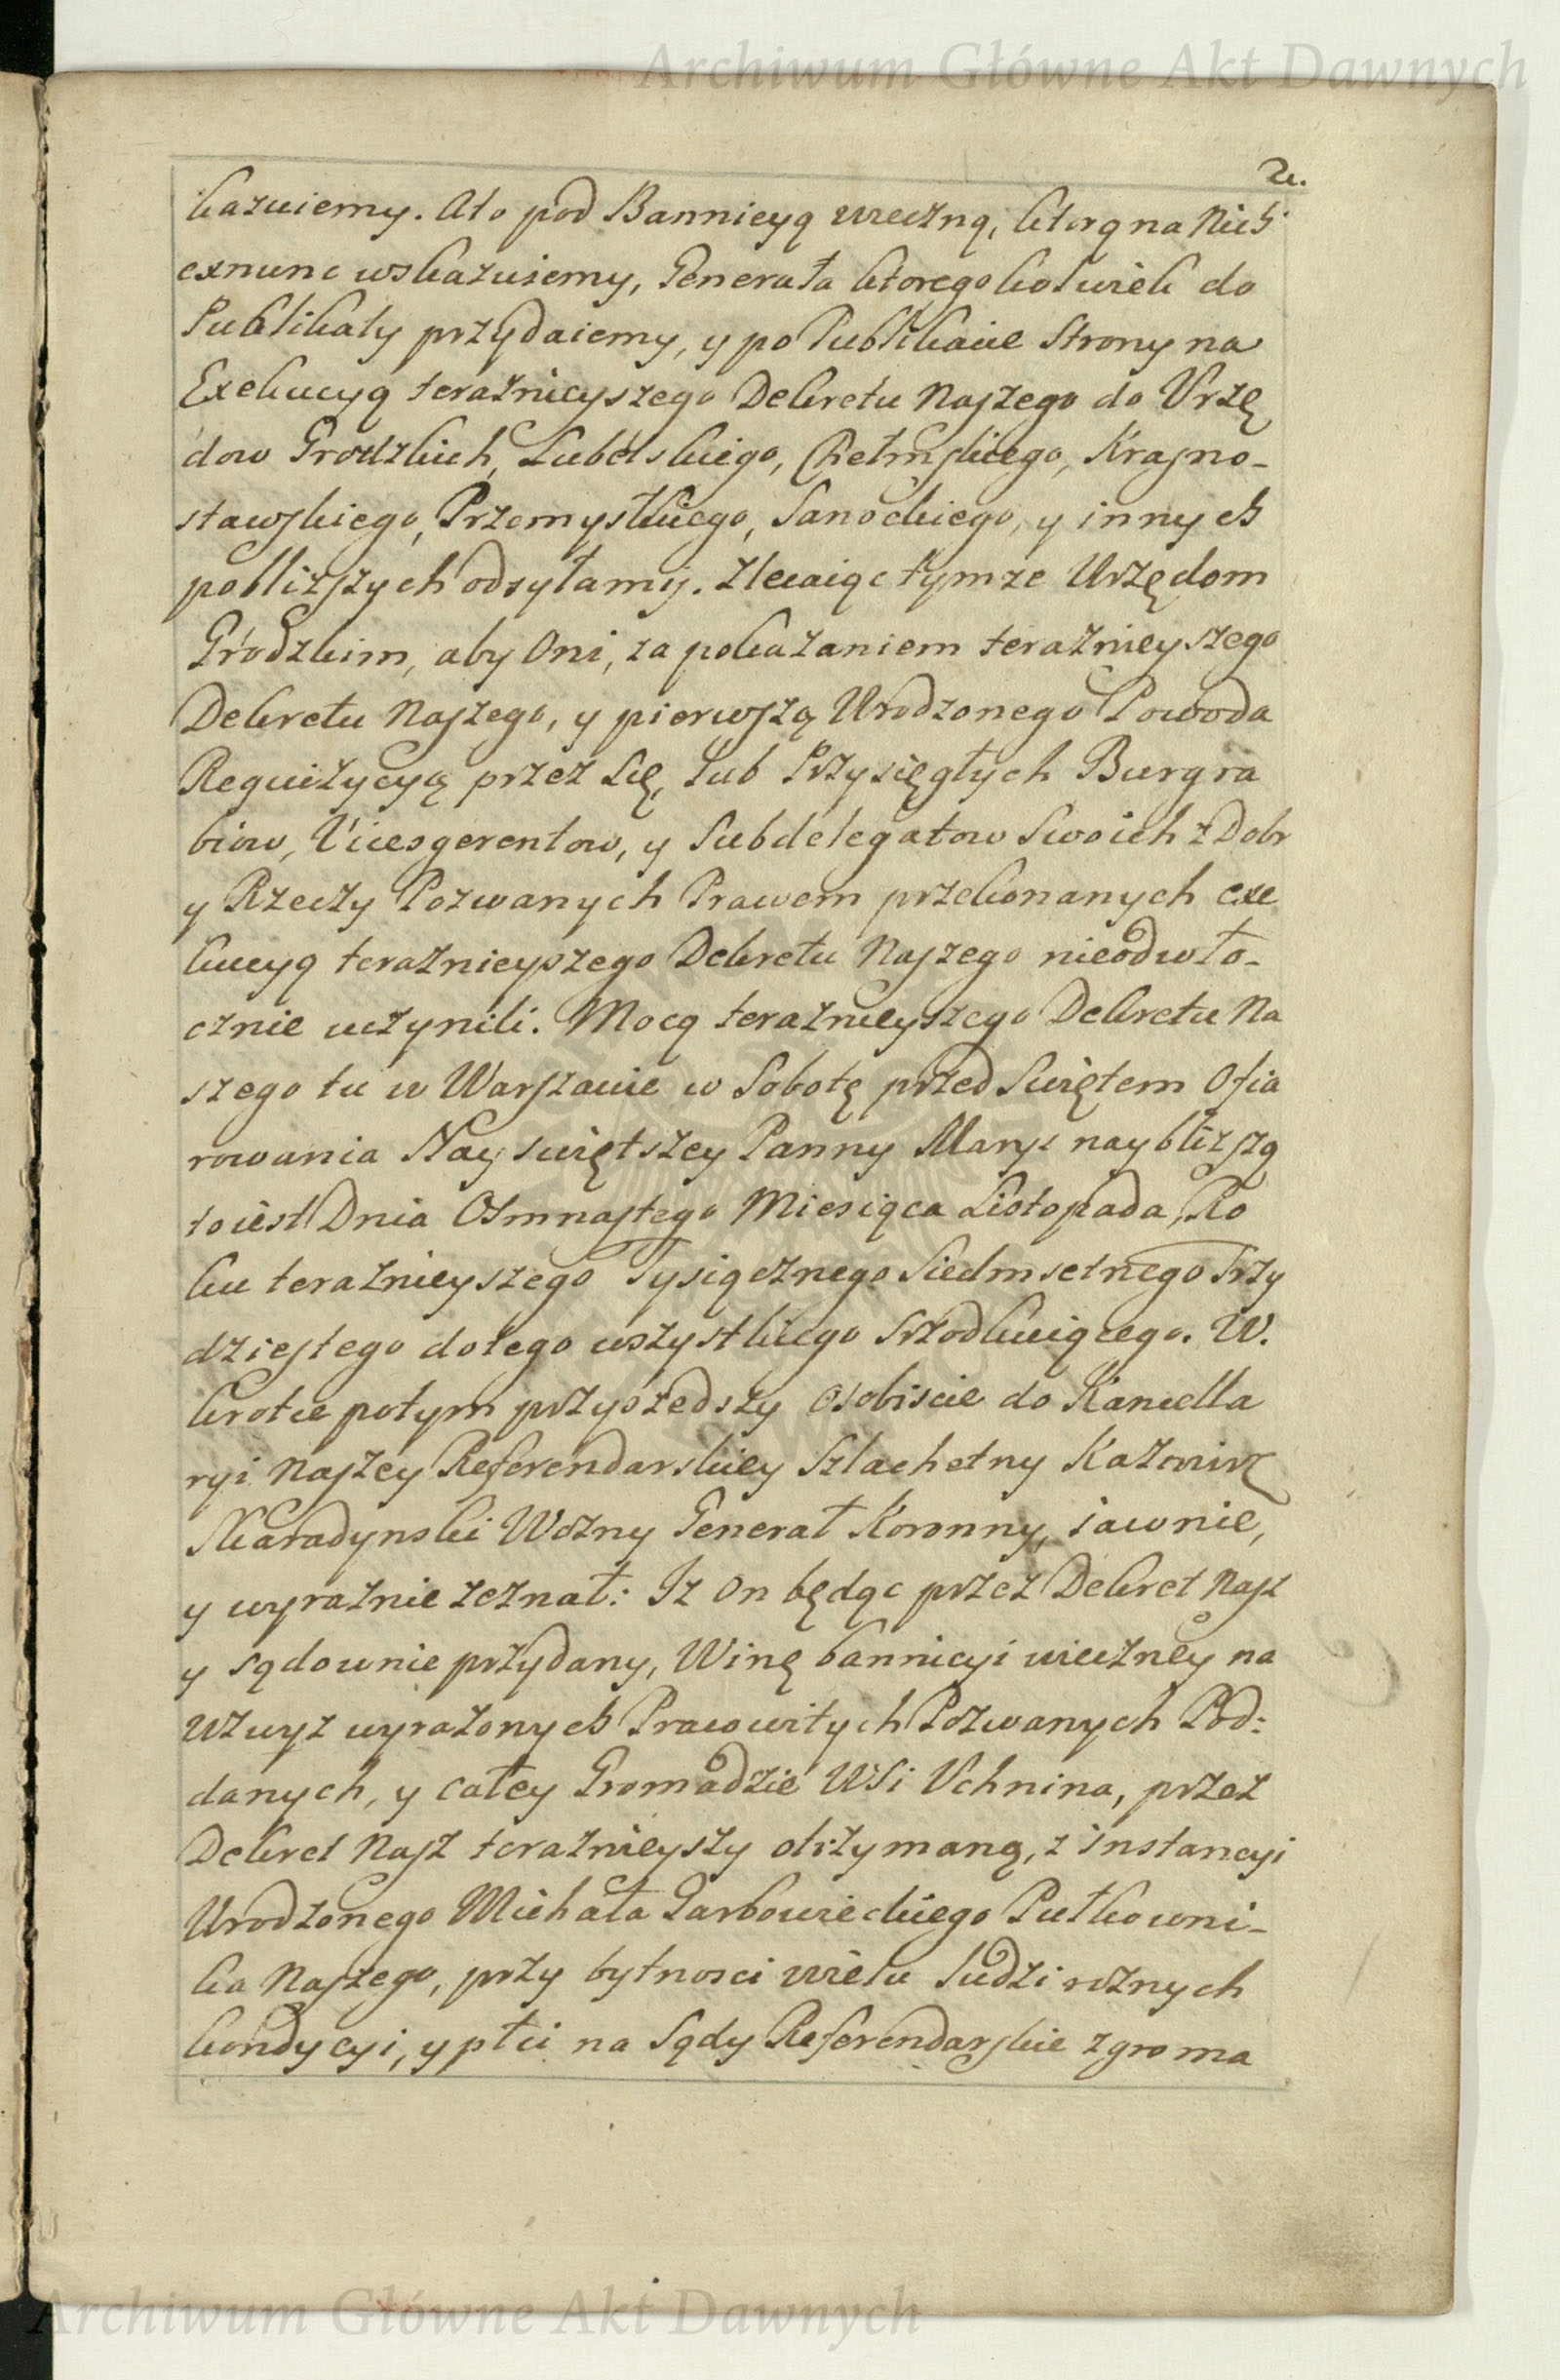 Archiwum Główne Akt Dawnych
2.
kazuiemy. Ato pod Bannicyą wieczną, ktorą na Nich
exnunc wskazuiemy, Generała ktoregokolwiek do
Publikaty przydaiemy, y po Publikacie Strony na
Exekucyą teraźnieyszego Dekretu Naszego do Vrzę
dow Grodzkich, Lubelskiego, Chełmskiego, Krasno-
stawskiego, Przemyskiego, Sanockiego, y innych
pobliższych odsyłamy. Zlecaiąc tymze Urzędom
Grodzkim, aby Oni, za pokazaniem teraźnieyszego
Dekretu Naszego, y pierwszą Urodzonego Powoda
Requizycyą przez Się, lub Przysięgłych Burgra
biow, Vicesgerentow, y Subdelegatow Swoich z Dobr
y Rzeczy Pozwanych Prawem przekonanych exe
kucyą teraźnieyszego Dekretu Naszego nieodwło-
cznie uczynili. Mocą teraźnieyszego Dekretu Na
szego tu w Warszawie w Sobotę przed Swiętem Ofia
rowania Nayswiętszey Panny Maryi naybliższą
to iest Dnia Osmnastego Miesiąca Listopada, Ro
ku teraźnieyszego Tysiącznego Siedmsetnego Trzy
dziestego dotego wszystkiego Srzodkuiącego. W.
krotce potym przyszedszy Osobiscie do Kancella
ryi Naszey Referendarskiey Szlachetny Kaźmirz
Skaradynski Wozny Generał Koronny, iawnie,
y wyraźnie zeznał: Iz On będąc przez Dekret Nasz
y sądownie przydany, Winę bannicyi wieczney na
wzwyz wyrażonych Pracowitych Pozwanych Pod:
danych, y całey Gromadzie WSi Vchnina, przez
Dekret Nasz teraźnieyszy otrzymaną, z instancyi
Urodzonego Michała Garbowieckiego Pułkowni-
ka Naszego, przy bytnosci wielu ludzi rożnych
kondycyi, y płci na Sądy Referendarskie zgroma
Archiwum Główne Akt Dawnych